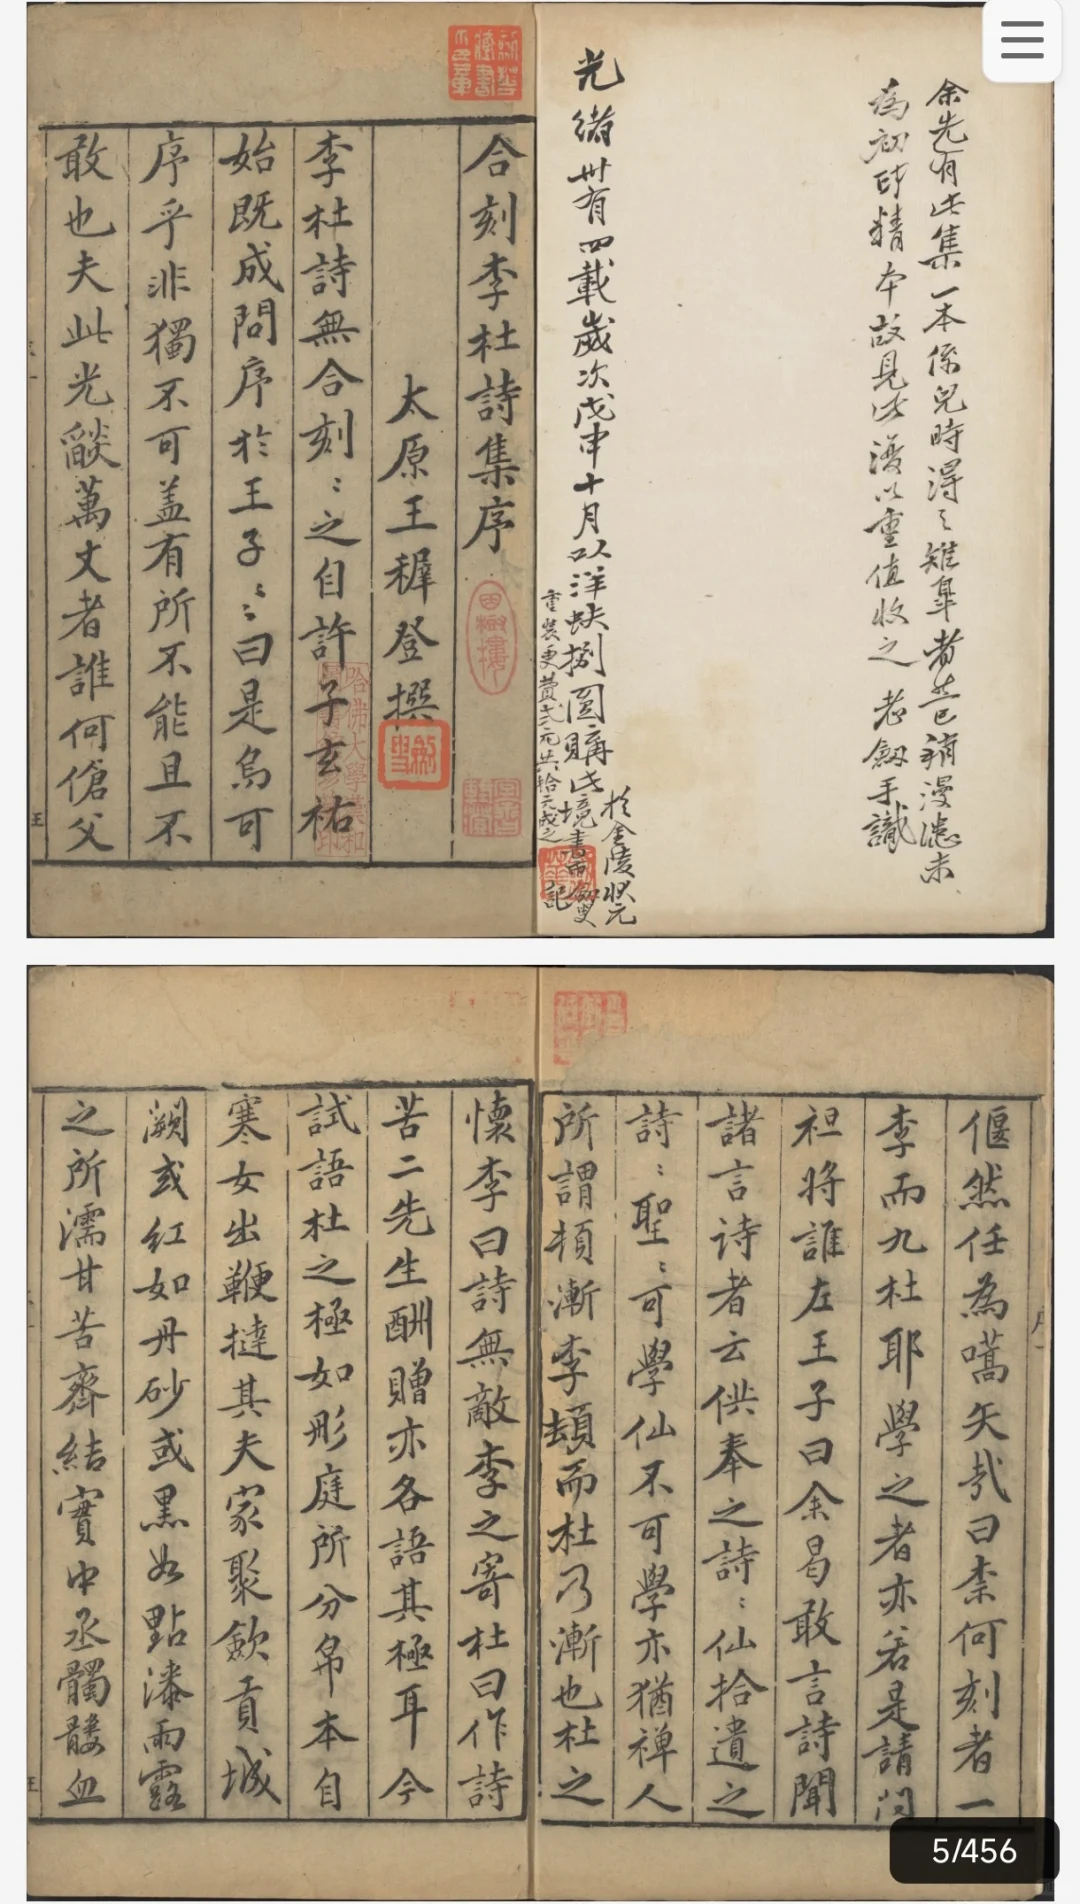 余先有此集一本係兒時得之雖舉者昔已稍漫漶未
為初印精本故見此復以重值收之 老劔手識
光緒卅有四載歲次戊申十月以洋蚨捌圓購此
於金陵狀元
境書肆劔叟
重裝更費弍元共拾元成之
記
合刻李杜詩集序
太原王穉登撰
李杜詩無合刻〻之自許子玄祐
始既成問序於王子〻〻曰是烏可
序乎非獨不可盖有所不能且不
敢也夫此光燄萬丈者誰何傖父
偃然任為嚆矢㢤曰柰何刻者一
李而九杜耶學之者亦若是請問
袒將誰左王子曰余曷敢言詩聞
諸言诗者云供奉之詩〻仙拾遺之
詩〻聖〻可學仙不可學亦猶禅人
所謂頓漸李頓而杜乃漸也杜之
懷李曰詩無敵李之寄杜曰作詩
苦二先生酬贈亦各語其極耳今
試語杜之極如彤庭所分帛本自
寒女出鞭撻其夫家聚歛貢城
闕或红如丹砂或黑如點漆雨露
之所濡甘苦齊結實中丞髑髏血
哈佛大學漢和
圖書館珍藏印
5/456